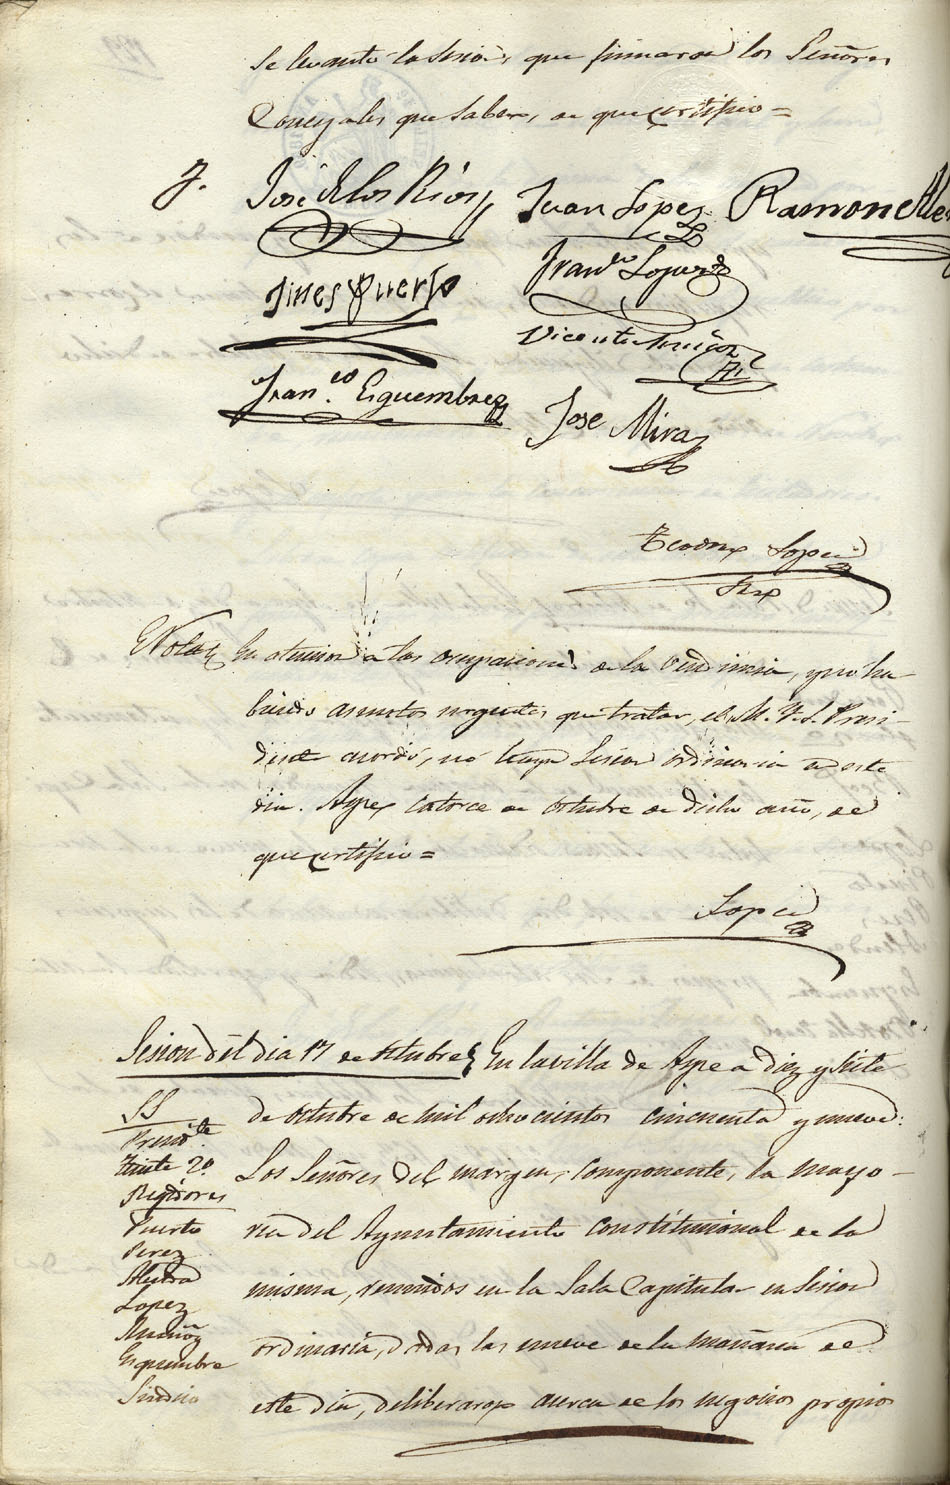 se levantó la sesion, que firmaron los Señores
Concejales que saben, de que certifico =
José de los Rios
Juan Lopez
Ramon
Gines Puerto
Fran.co Lopez
Vicente Muñoz
Fran.co Esquembre
Jose Mira
Teodoro Lopez
Srio
Nota En atencion a las ocupaciones de la vendimia, y no ha-
biendo asuntos urgentes que tratar, el M. Y. S. Presi-
dente acordó, no haya sesion ordinaria en este
dia. Aspe catorce de Octubre de dicho año, de
que certifico =
Lopez
Sesion del dia 17 de Octubre En la villa de Aspe a diez y siete
de Octubre de mil ochocientos cincuenta y nueve:
Los Señores del margen, componente, la mayo-
ria del Ayuntamiento constitucional de la
misma, reunidos en la Sala Capitular en sesion
ordinaria, dadas las nueve de la mañana de
este dia, deliberaron acerca de los negocios propios
SS
Presid.te
Tente 2º
Regidores
Puerto
Perez
Lopez
Muñoz
Esquembre
Sindico